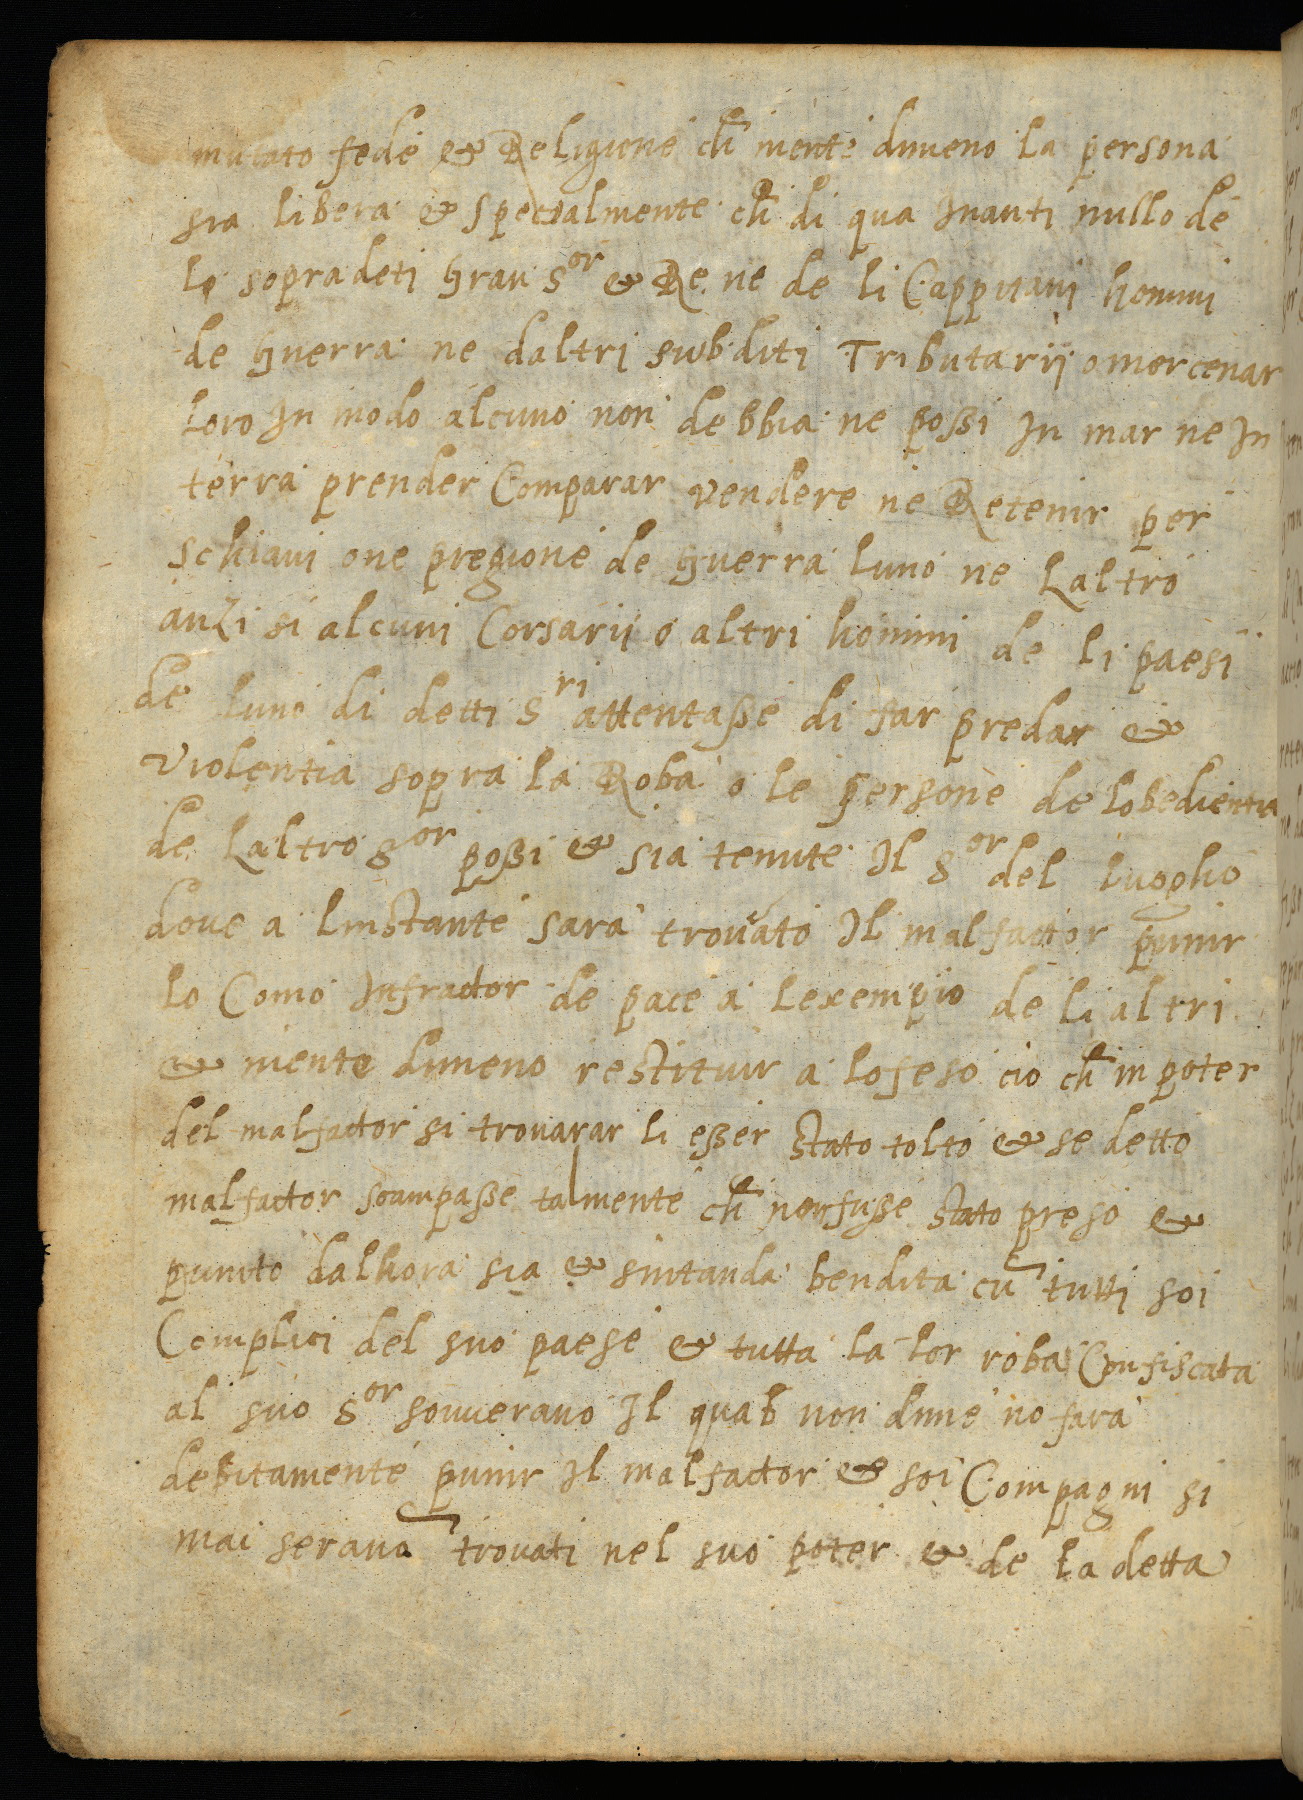 mutato fede & Religione ch niente dimeno la persona
sia libera & specialmente ch di qua Inanti nullo de
lo sopradeti Gran Sor & Re ne de li Cappitani homini
de Guerra ne daltri subditi Tributarij o mercenar
loro In modo alcuno non debbia ne possi In mar ne In
terra prender Comparar vendere ne Retenir per
schiavi one pregione de Guerra luno ne Laltro
anzi si alcuni Corsarij o altri homini de li paesi
de luno di detti Sri attentasse di far predar &
violentia sopra la Roba o le persone de lobedientia
de Laltro Sor possi & sia tenute Il Sor del luogho
dove a linstante sara trovato Il malfactor punir
lo Como Infractor de pace a lexempio de li altri
& niente dimeno restituir a lofeso cio ch in poter
del malfactor si trovarar li esser stato tolto & se detto
malfactor scampasse talmente ch non fusse stato preso &
punito dalhora sia & sintanda bendita cu tutti soi
Complici del suo paese & tutta la lor roba Confiscata
al suo Sor souverano Il qual non dime no fara
debitamente punir Il malfactor & soi Compagni si
mai serano trovati nel suo poter & de la detta